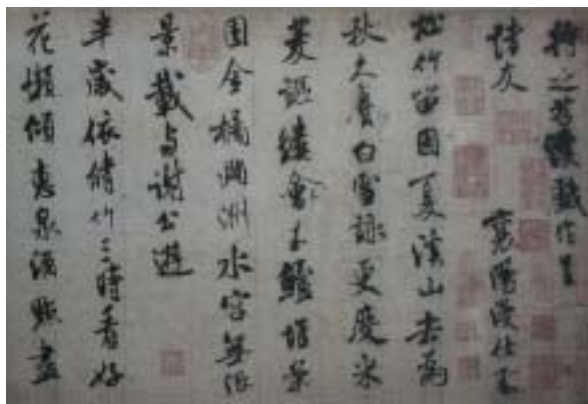 將之苕溪戲作呈
諸友 襄陽漫仕黻
松竹留因夏溪山去為
秋久賡白雪詠更度采
菱謳縷會玉鱸堆案
團金橘滿洲水宮無限
景載與謝公遊
半歲依脩竹三時看好
花懶傾惠泉酒點盡